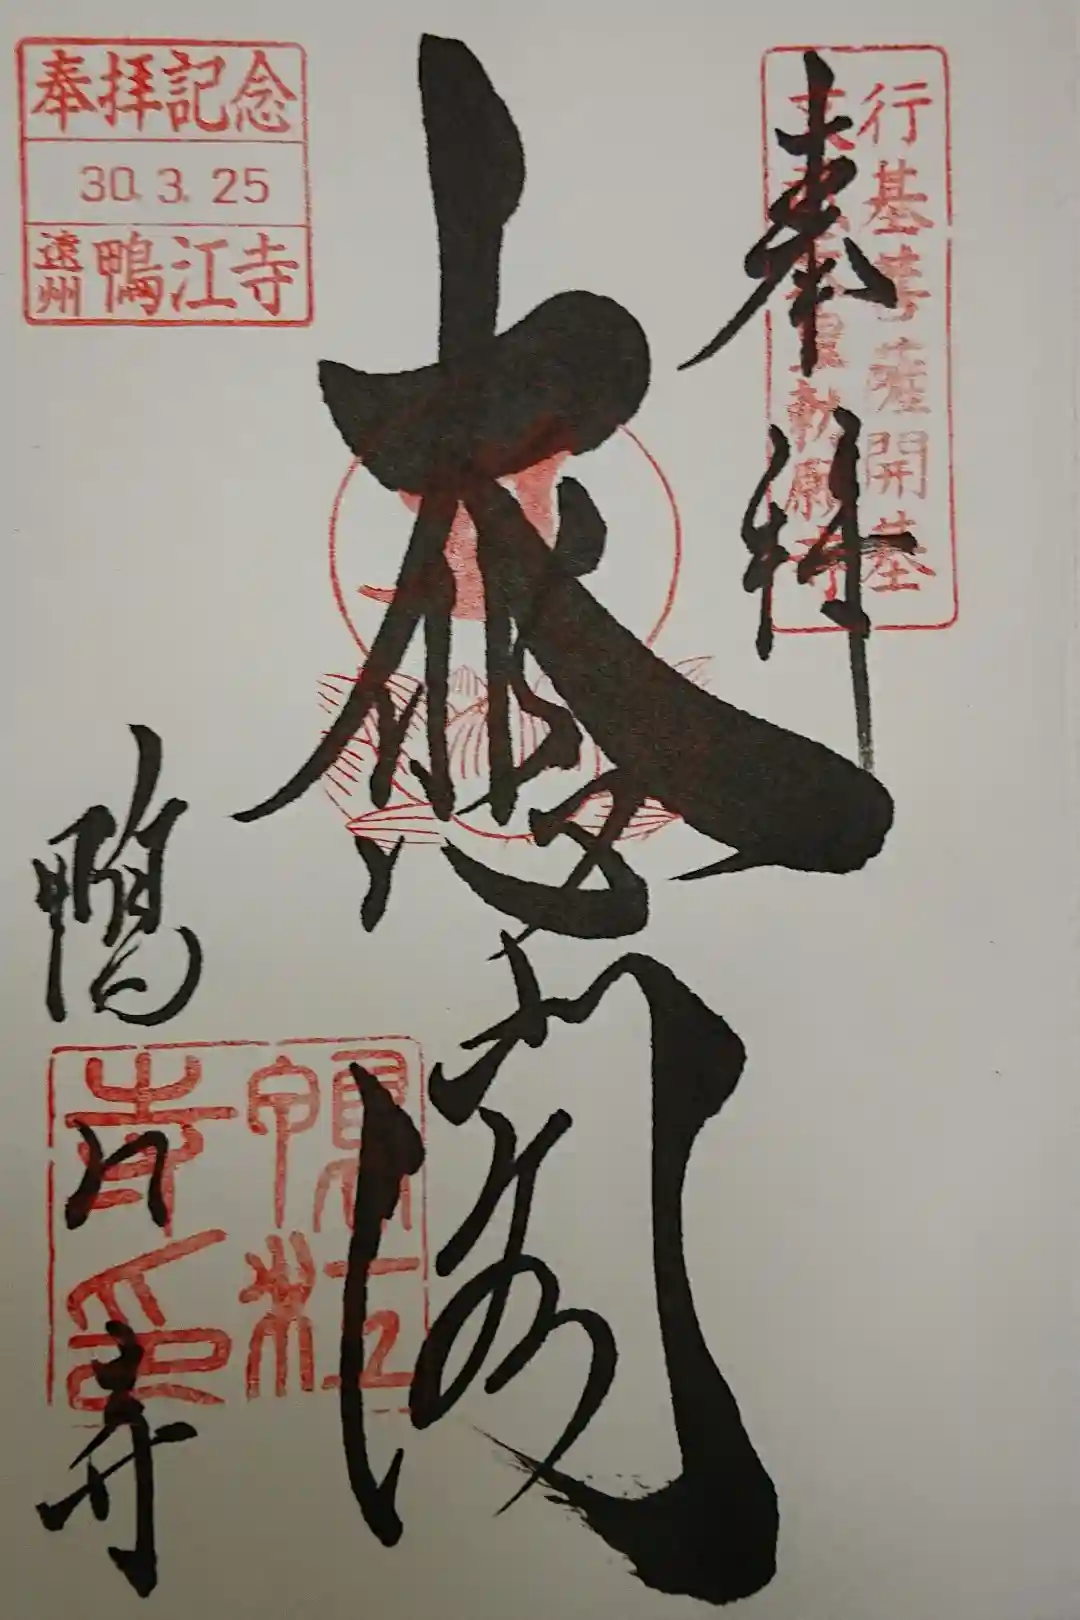 行基菩薩開基
奉拝
大悲閣
奉拝記念
30.3.25
遠州 鴨江寺
鴨江寺
鴨江
寺印